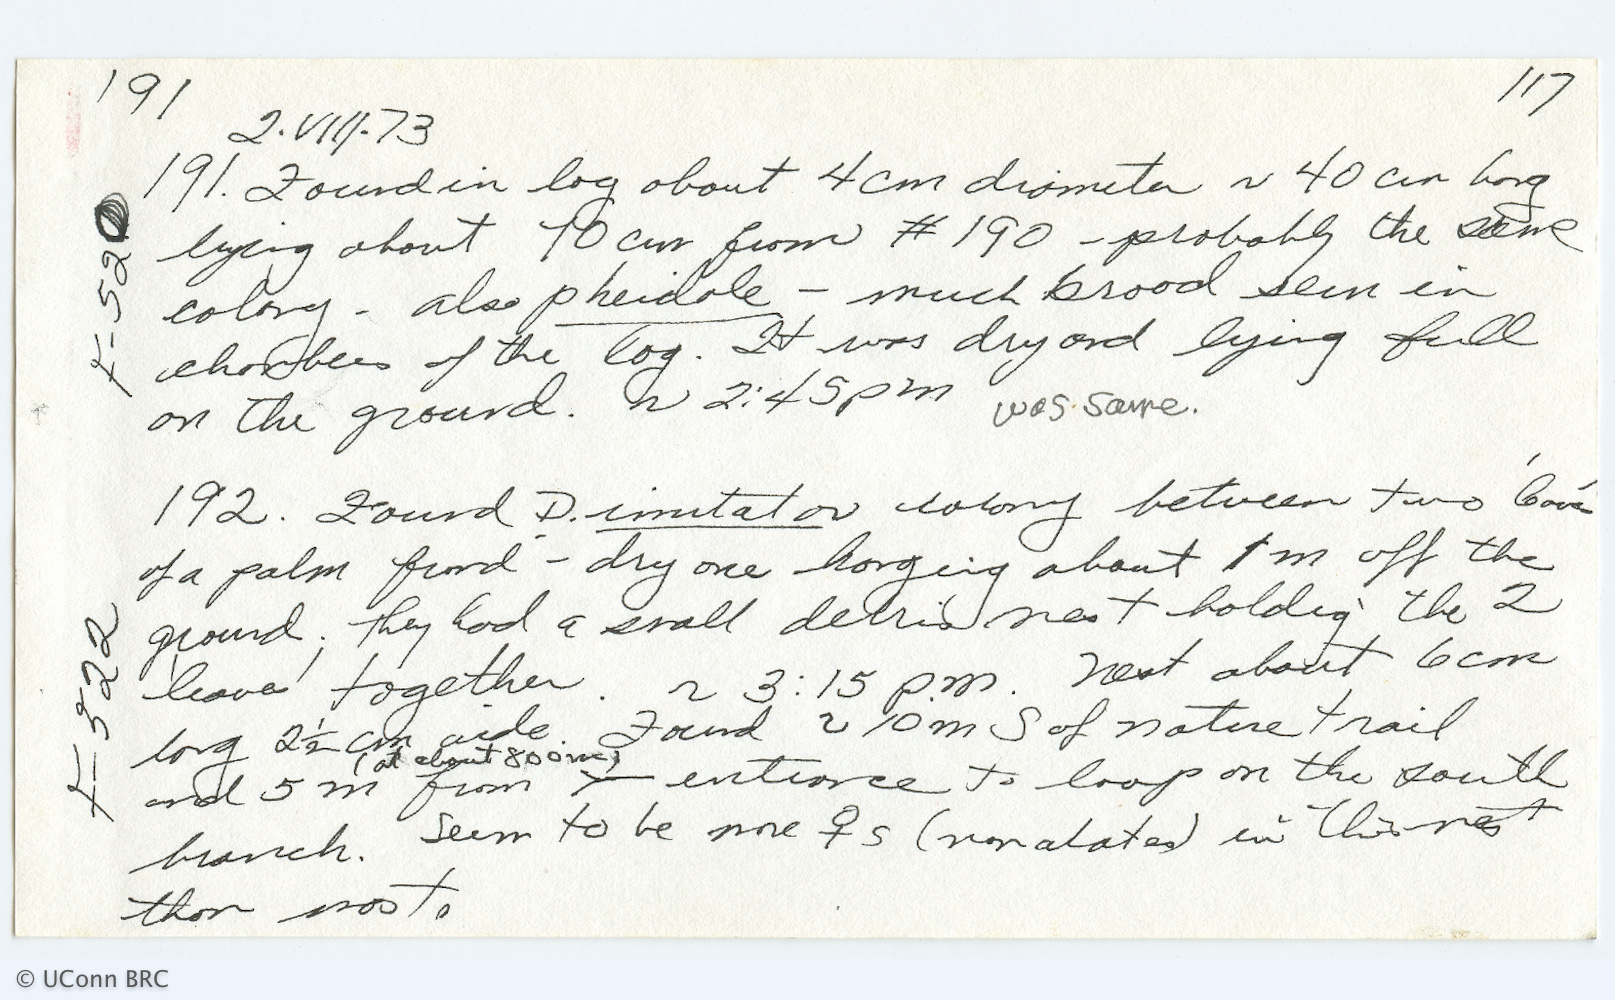 191
117
2.VIII.73
191. Found in log about 4 cm diameter ~ 40 cm long
lying about 70 cm from # 190 - probably the same
colony - also pheidole - much brood seen in
chambers of the log. It was dry and lying full
on the ground. ~ 2:45 pm was same.
F-520
192. Found D. imitator colony between two 'leave'
of a palm frond - dry one hanging about 1 m off the
ground. They had a small debris nest holding the 2
'leave' together. ~ 3:15 p.m. Nest about 6 cm
long 2½ cm wide. Found ~ 10 m S of nature trail
(at about 800 m)
and 5 m from Y entrance to loop on the south
branch. Seem to be more ♀s (non alates) in this nest
than most.
F-522
© UConn BRC